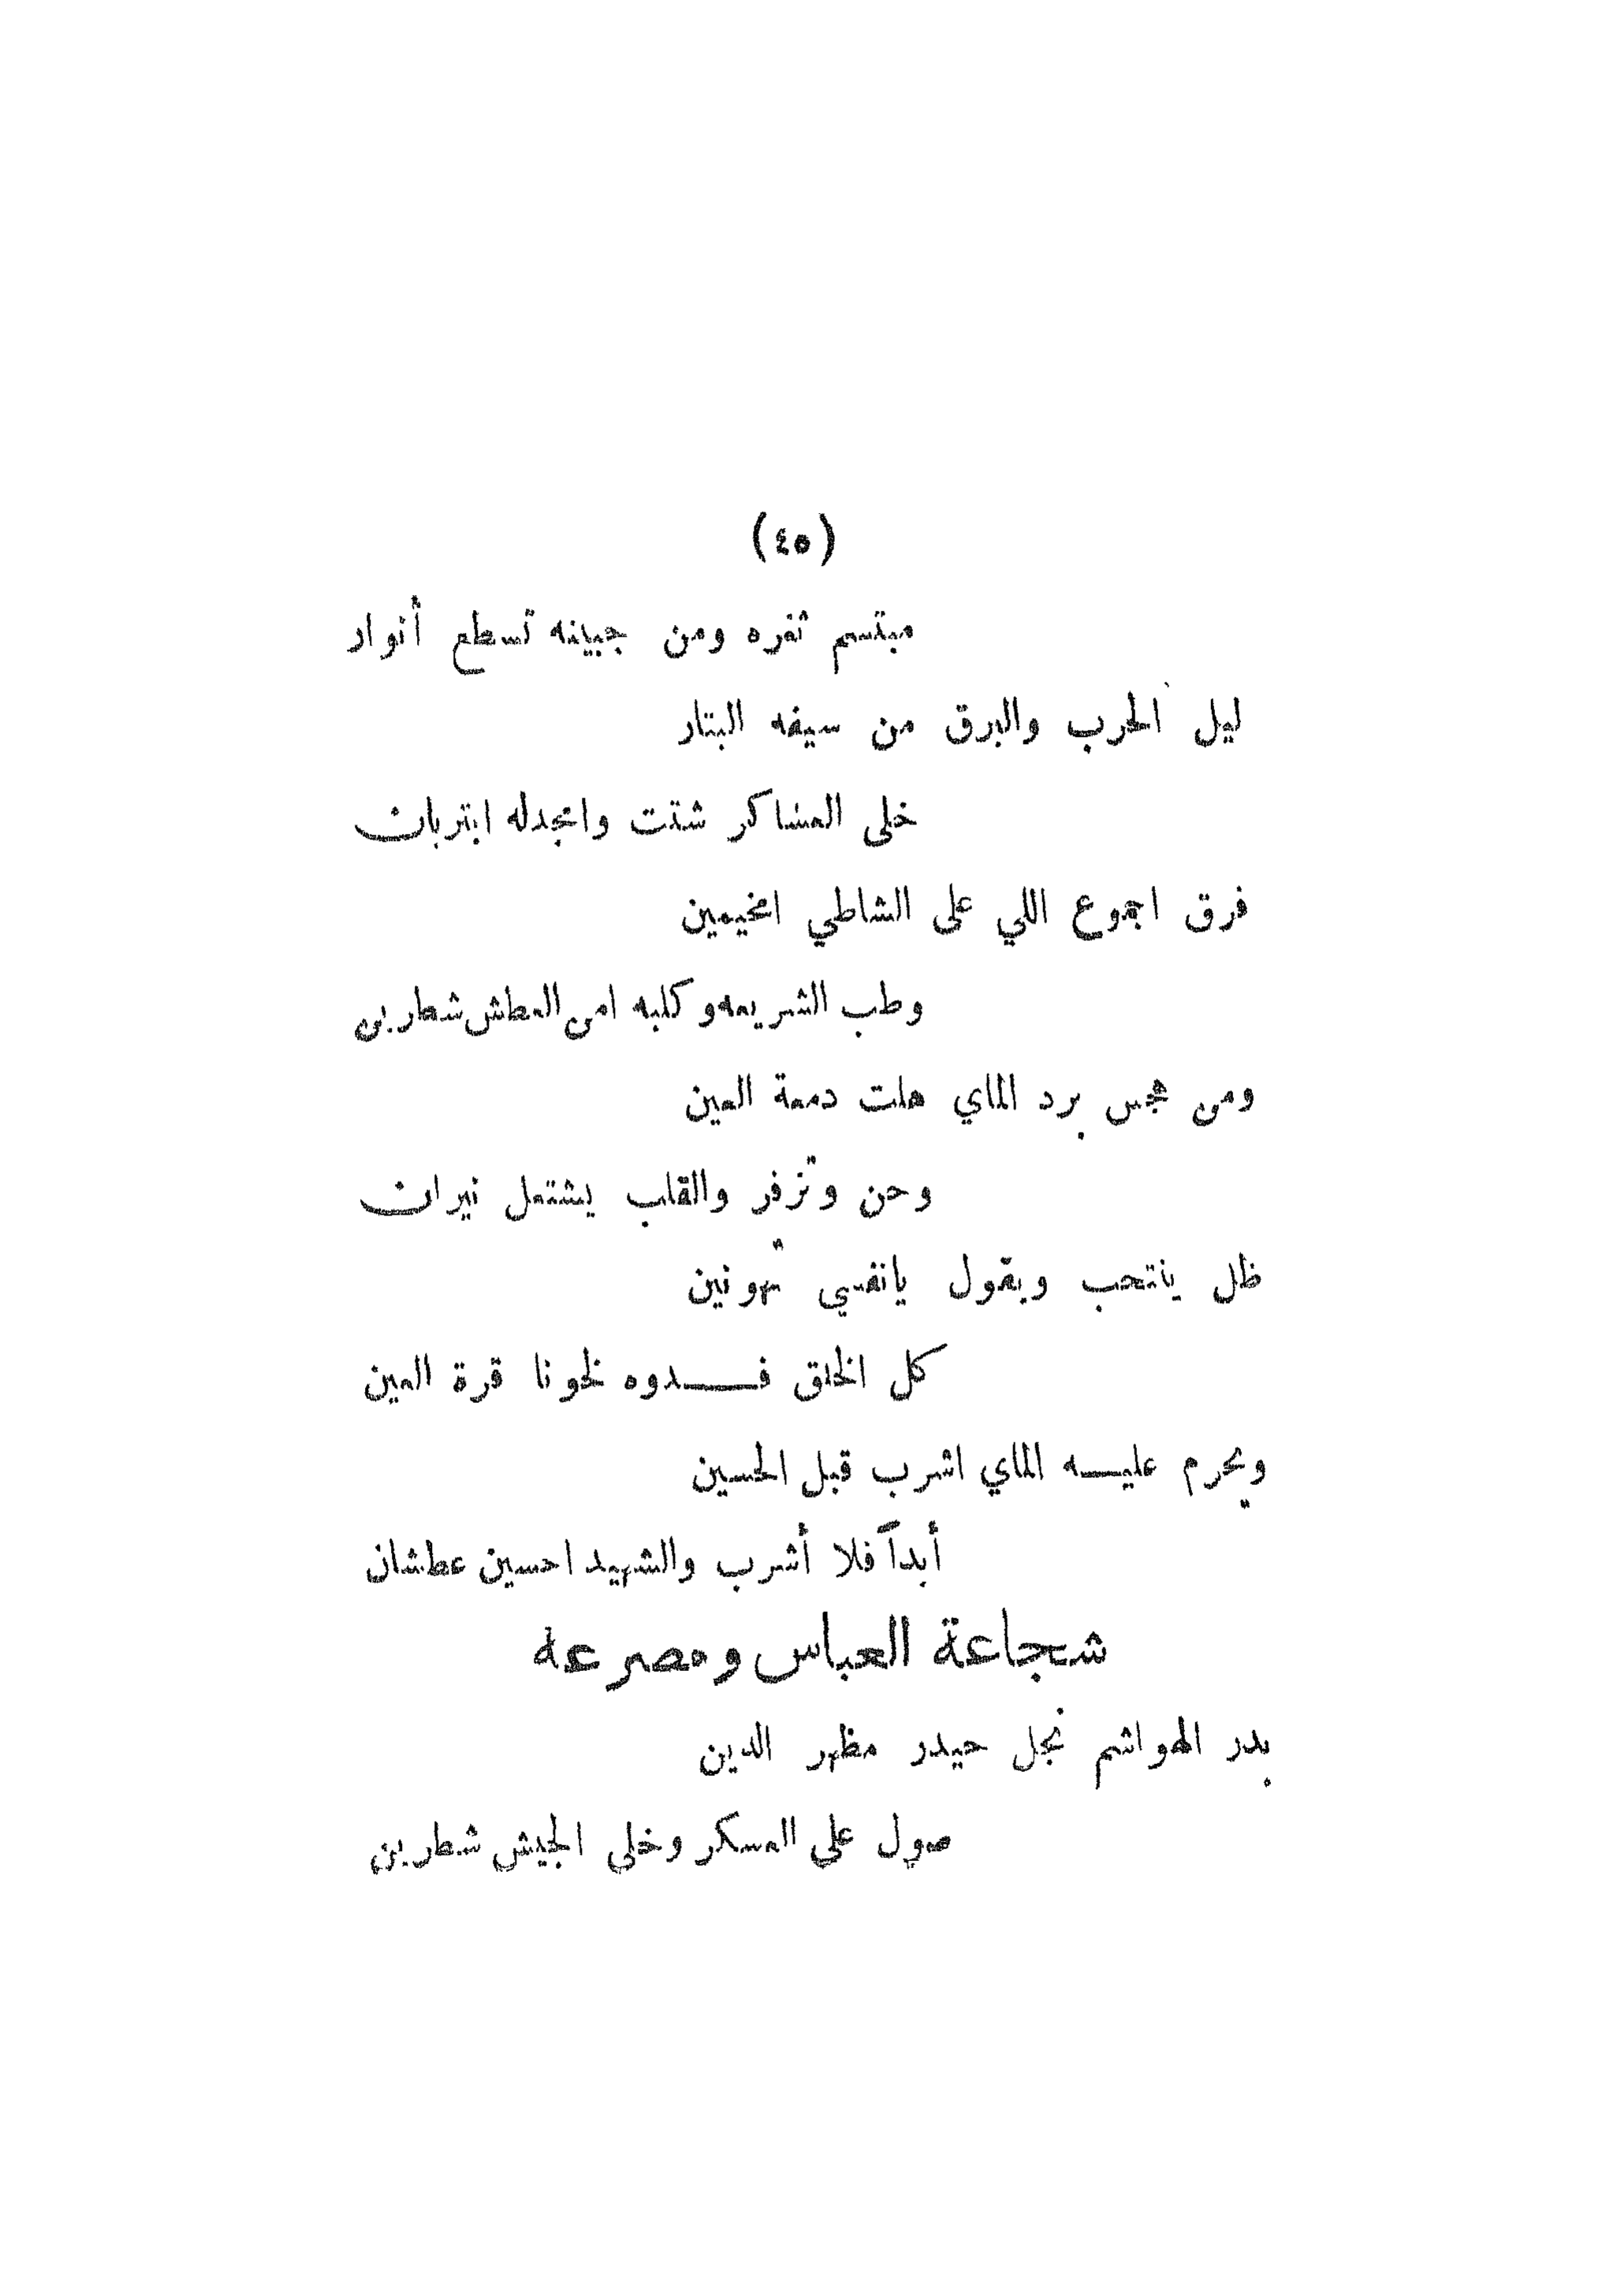 (٤٥)
مبتسم ثغره ومن جبينه تسطع أنوار
ليل الحرب والبرق من سيفه البتار
خلى العساكر شتت وامجدله ابتربان
فرق اجموع اللي على الشاطي امخيمين
وطب الشريعه وكلبه امن العطش شطرين
ومن حس برد الماي هلت دمعة العين
وحن وتزفر والقلب يشتعل نيران
ظل ينتحب ويقول يانفسي تهونين
كل الخلق فــدوه لخونا قرة العين
ويحرم عليــه الماي اشرب قبل الحسين
أبداً فلا أشرب والشهيد احسين عطشان
شجاعة العباس ومصرعه
بدر الهواشم نجل حيدر مظهر الدين
صول على العسكر وخلى الجيش شطرين